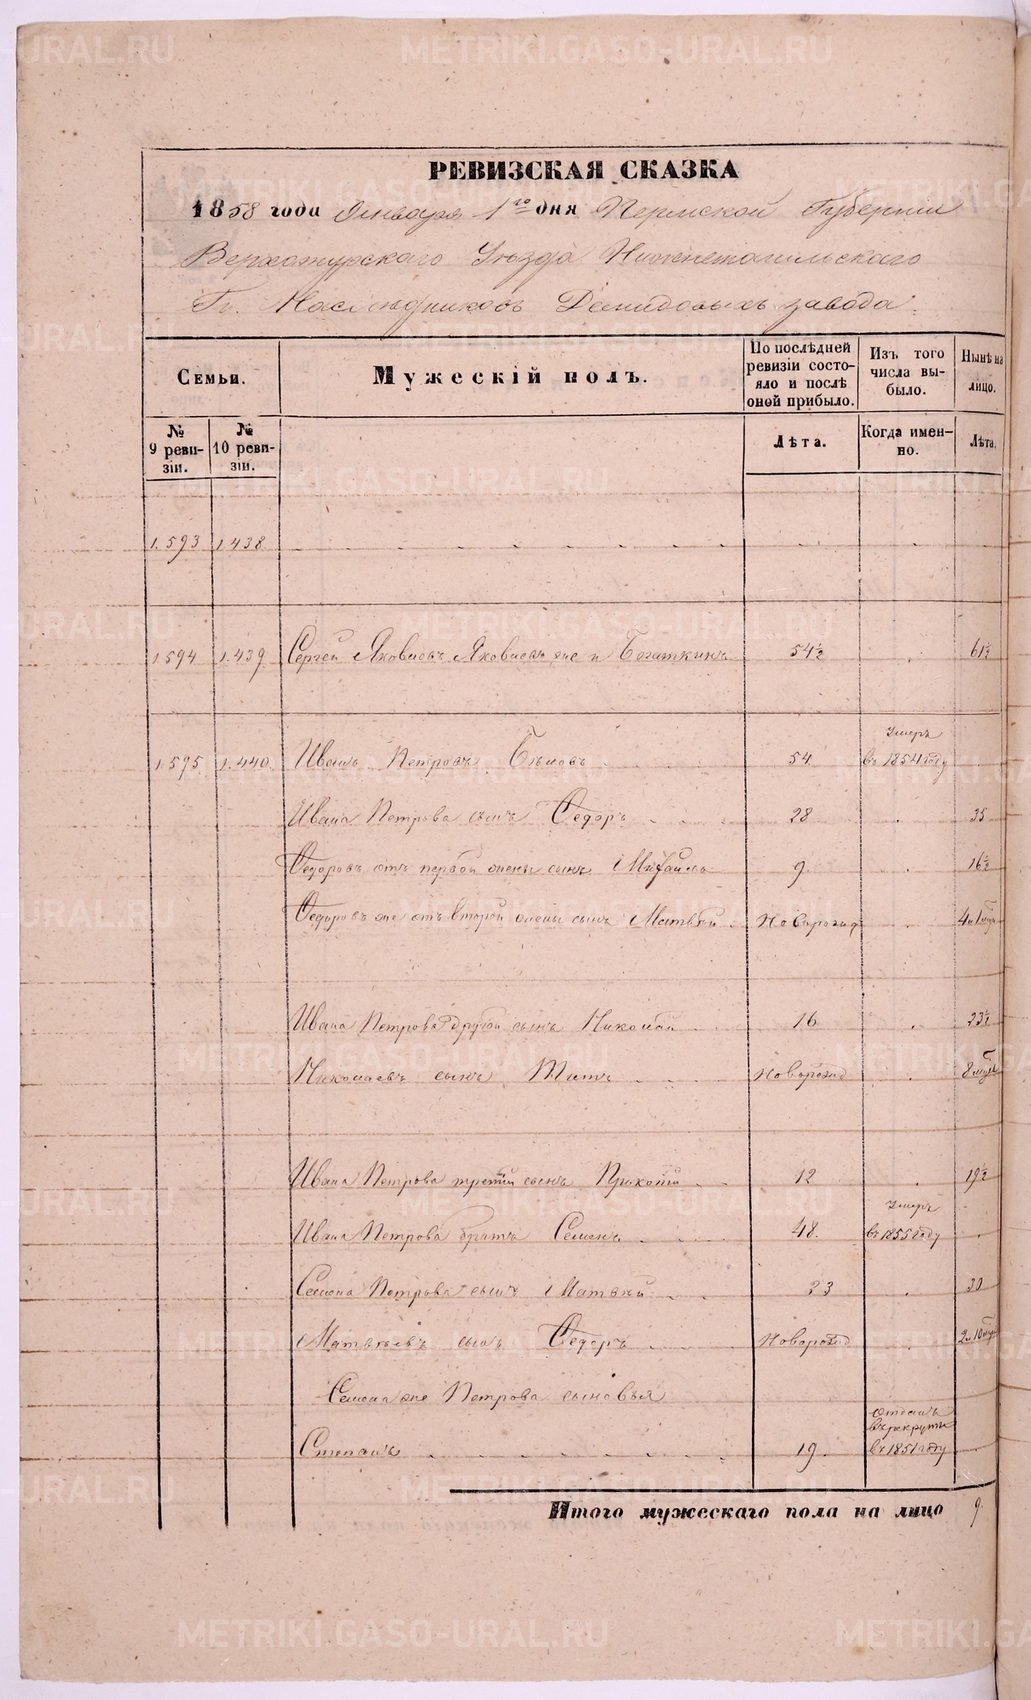 РЕВИЗСКАЯ СКАЗКА
1858 года Января 1го дня Пермской Губернии
Верхотурскаго Уезда Нижнетагильскаго
Гг. Наследниковъ Демидовыхъ завода.
Семьи. Мужескій полъ. По послѣдней ревизіи состояло и послѣ оной прибыло. Изъ того числа выбыло. Нынѣ на лицо.
№ 9 ревизіи. № 10 ревизіи. Лѣта. Когда именно. Лѣта.
1.593 1.438
1.594 1.439 Сергей Яковлевъ Яковлевъ же и Богаткинъ 54½ 61½
1.595 1.440 Иванъ Петровъ Бѣловъ 54 Умеръ въ 1854 году
Ивана Петрова сынъ Ѳедоръ 28 35
Ѳедоровъ отъ первой жены сынъ Михаилъ 9 16½
Ѳедоровъ же отъ второй жены сынъ Матвѣй Новорожд 4
Ивана Петрова другой сынъ Николай 16 23½
Николаевъ сынъ Титъ Новорожд 8 мѣс
Ивана Петрова третий сынъ Прокопій 12 19½
Ивана Петрова братъ Семенъ 48. Умеръ въ 1855 году
Семена Петрова сынъ Матвѣй 23 30
Матвѣевъ сынъ Ѳедоръ Новорожд 2 10 мѣс
Семена же Петрова сыновья
Степанъ 19 Отданъ въ рекруты въ 1851 году
Итого мужескаго пола на лицо 9
METRIKI.GASO-URAL.RU